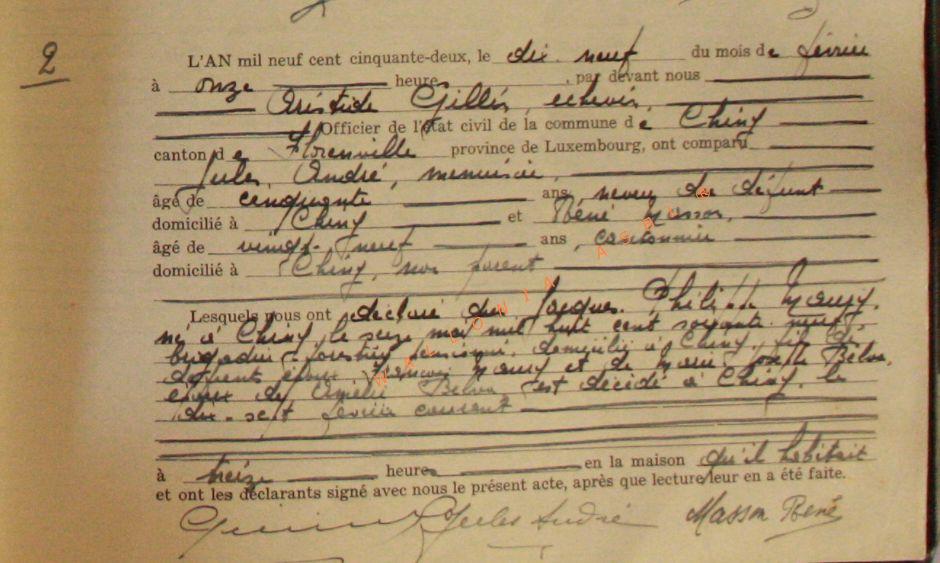 2
L'AN mil neuf cent cinquante-deux, le dix-neuf du mois de février
à onze heure , par devant nous
Aristide Gillis, echevin,
Officier de l'état civil de la commune de Chiny
canton de Florenville province de Luxembourg, ont comparu
Jules, André, menuisier,
âgé de cenquante ans, neveu du défunt
domicilié à Chiny et Réné Masson,
âgé de vingt-neuf ans, cantonnier
domicilié à Chiny, non parent
Lesquels nous ont déclaré que Jacques, Philippe
né à Chiny, le seize mai mil huit cent soixante neuf
brigadier forestier pensionné, domicilié à Chiny, fils de
défunts époux et de Marie
époux de Amélie est décédé à Chiny, le
dix-sept février courant
à treize heures en la maison qu'il habitait
et ont les déclarants signé avec nous le présent acte, après que lecture leur en a été faite.
Jules André Masson René
WALLONIA ASBL